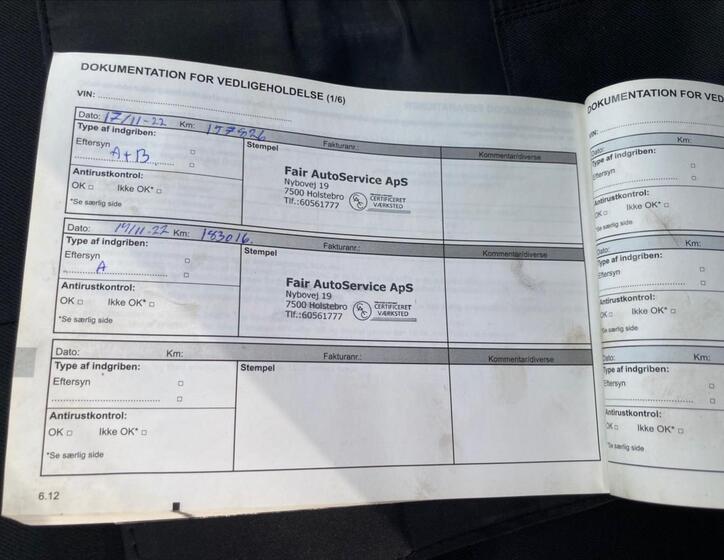 DOKUMENTATION FOR VEDLIGEHOLDELSE (1/6)
VIN:
Dato: 17/11-22 Km: 177826
Type af indgriben:
Eftersyn
A+B
Antirustkontrol:
OK Ikke OK*
*Se særlig side
Stempel Fakturanr.:
Fair AutoService ApS
Nybovej 19
7500 Holstebro
Tlf.:60561777
CERTIFICERET
VÆRKSTED
Kommentar/diverse
Dato: Km: 183016
Type af indgriben:
Eftersyn
A
Antirustkontrol:
OK Ikke OK*
*Se særlig side
Stempel Fakturanr.:
Fair AutoService ApS
Nybovej 19
7500 Holstebro
Tlf.:60561777
CERTIFICERET
VÆRKSTED
Kommentar/diverse
Dato: Km:
Type af indgriben:
Eftersyn
Antirustkontrol:
OK Ikke OK*
*Se særlig side
Stempel Fakturanr.:
Kommentar/diverse
6.12
DOKUMENTATION FOR VED
VIN:
Dato: Km:
Type af indgriben:
Eftersyn
Antirustkontrol:
OK Ikke OK*
*Se særlig side
Dato: Km:
Type af indgriben:
Eftersyn
Antirustkontrol:
OK Ikke OK*
*Se særlig side
Dato: Km:
Type af indgriben:
Eftersyn
Antirustkontrol:
OK Ikke OK*
*Se særlig side